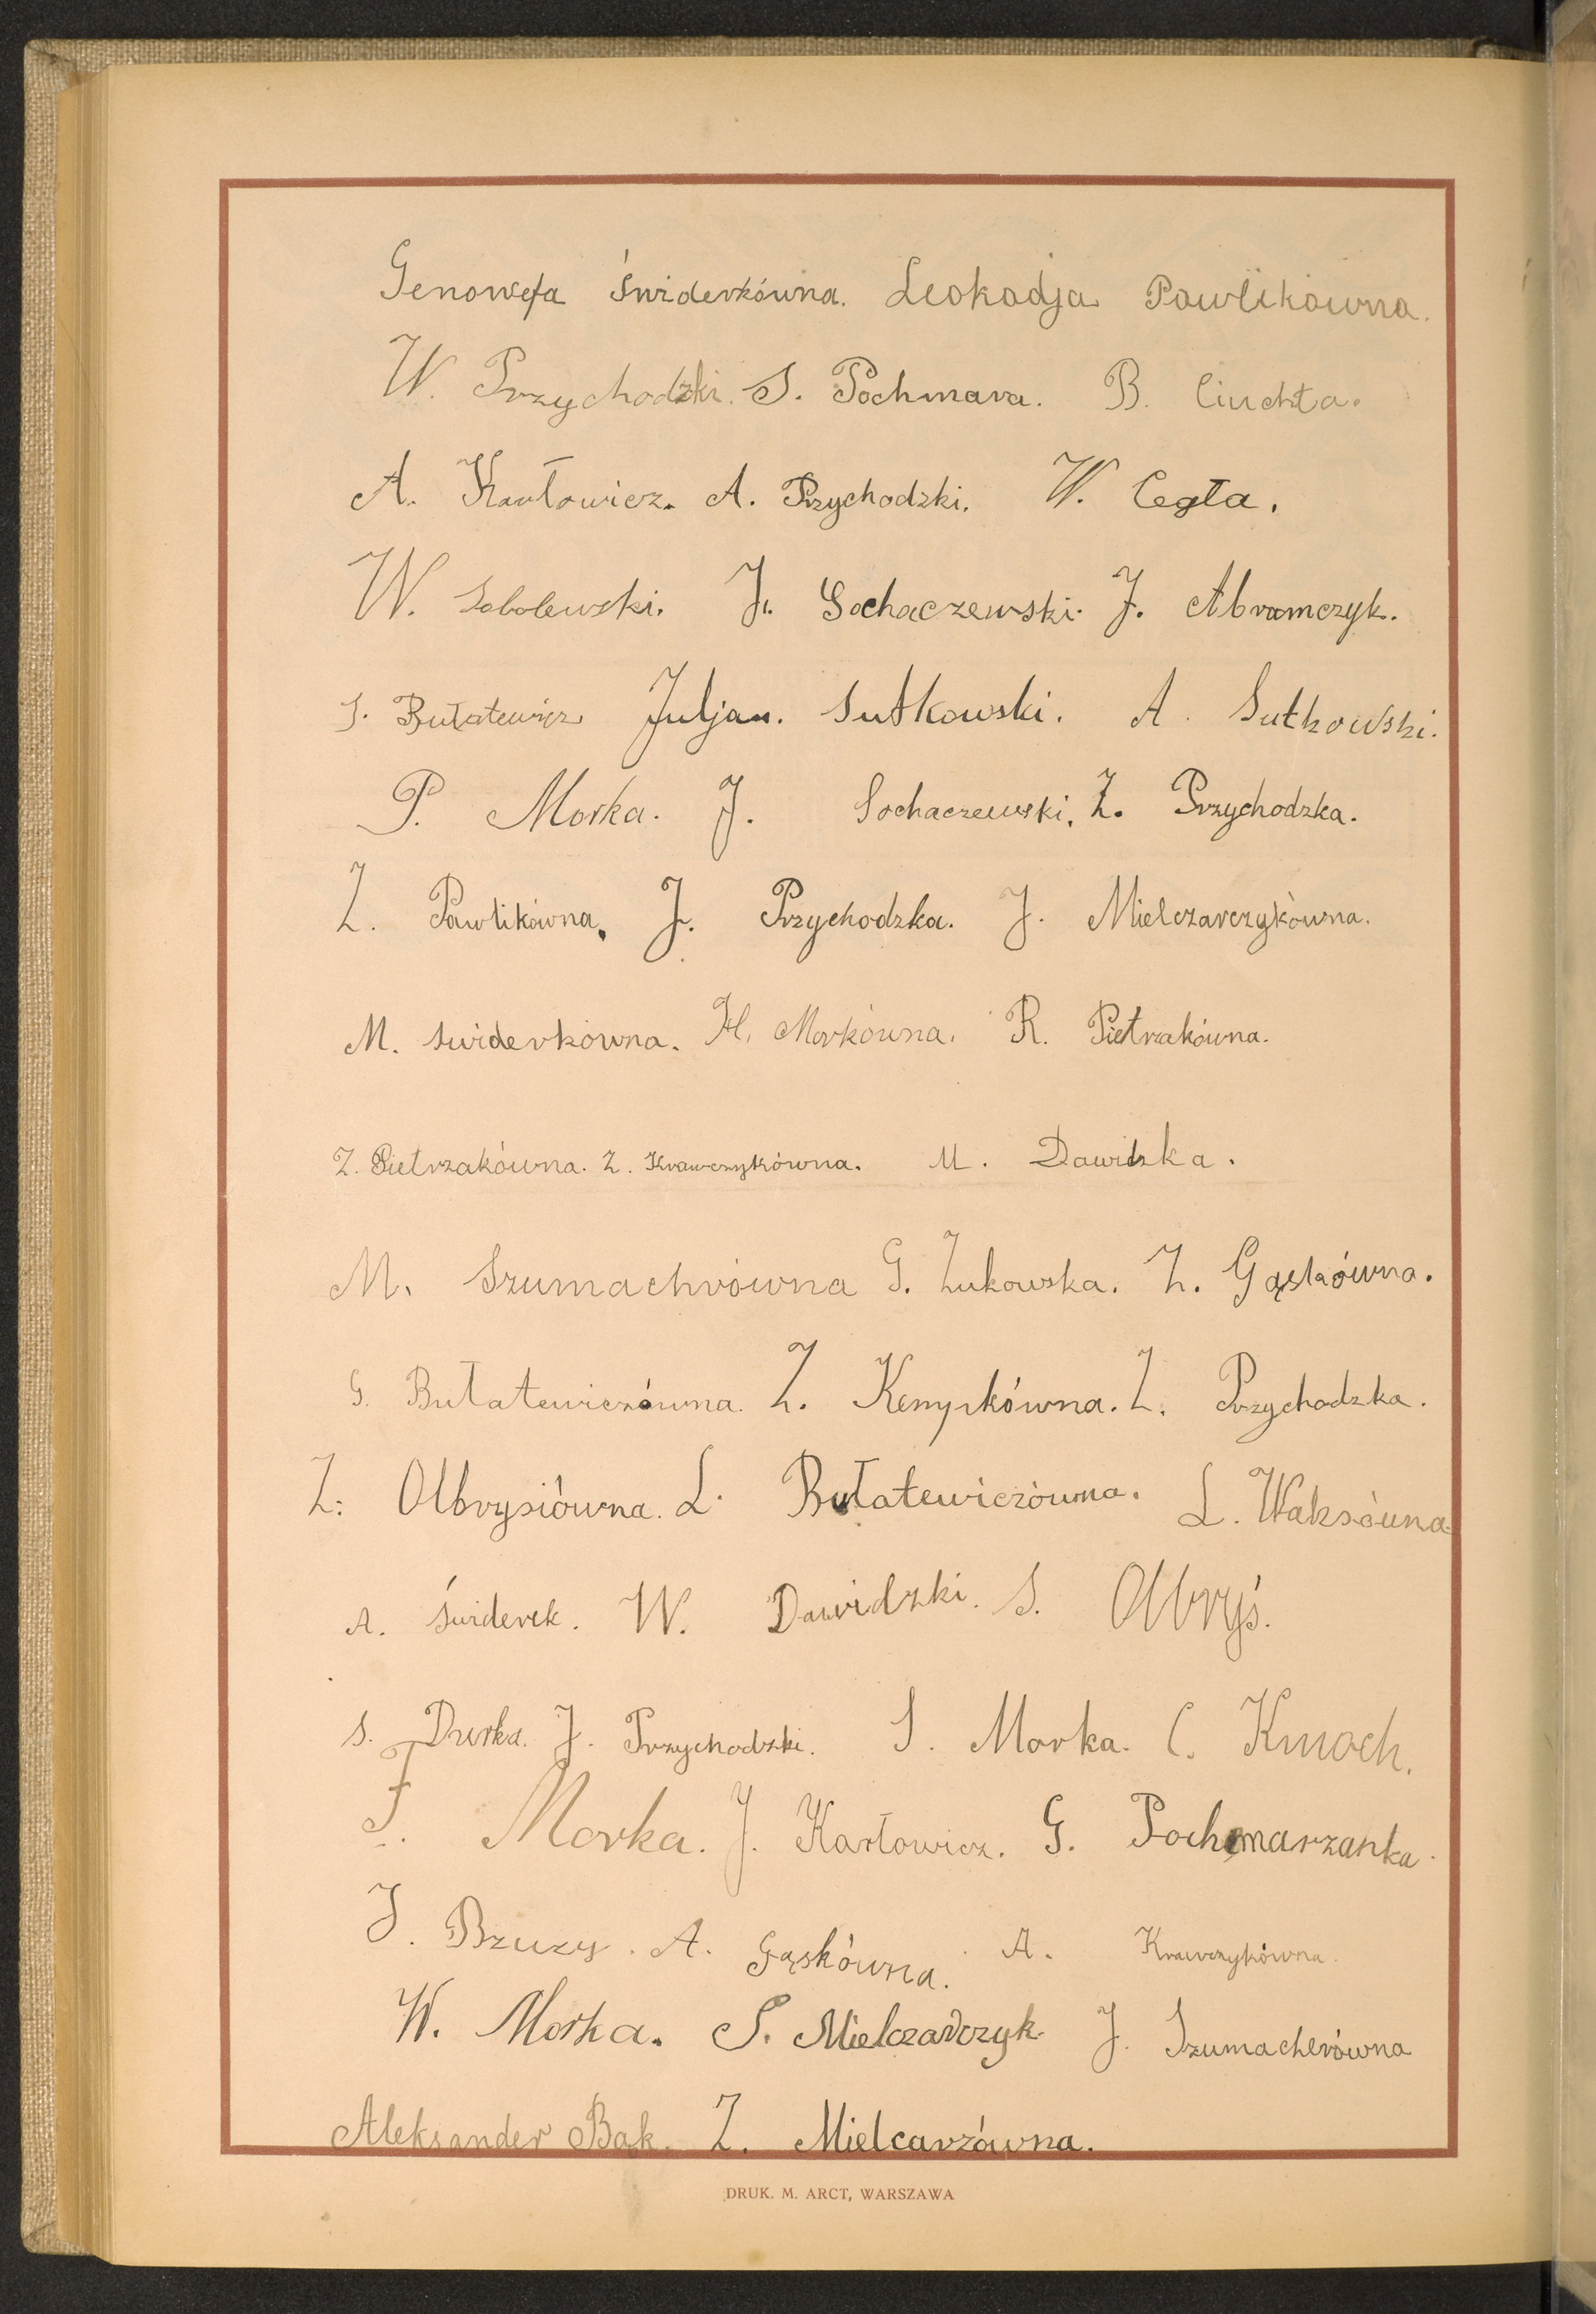 Genowefa Świderkówna. Leokadja Pawlikówna.
W. Przychodzki. S. Pochmara. B. Ciuchta.
A. Karłowicz. A. Przychodzki. W. Cegła.
W. Sobolewski. J. Sochaczewski. J. Abramczyk.
S. Bułatewicz Juljan. Sutkowski. A. Sutkowski.
P. Morka. J. Sochaczewski. Z. Przychodzka.
Z. Pawlikówna. J. Przychodzka. J. Mielczarczykówna.
M. Świderkówna. H. Morkówna. R. Pietrakówna.
Z. Pietrzakówna. Z. Krawczykówna. M. Dawidzka.
M. Szumachrówna G. Żukowska. Z. Gąskówna.
G. Bułatewiczówna. Z. Kempkówna. Z. Przychodzka.
Z. Olbrysiówna. L. Bułatewiczówna. L. Waksówna.
A. Świderek. W. Dawidzki. S. Olbryś.
S. Durka. J. Przychodzki. S. Morka. C. Kmoch.
F. Morka. J. Karłowicz. G. Pochmarzanka.
J. Bzuzy. A. Gąskówna. A. Krawczykówna.
W. Morka. S. Mielczarczyk. J. Szumacherówna
Aleksander Bąk. Z. Mielcarzówna.
DRUK. M. ARCT, WARSZAWA